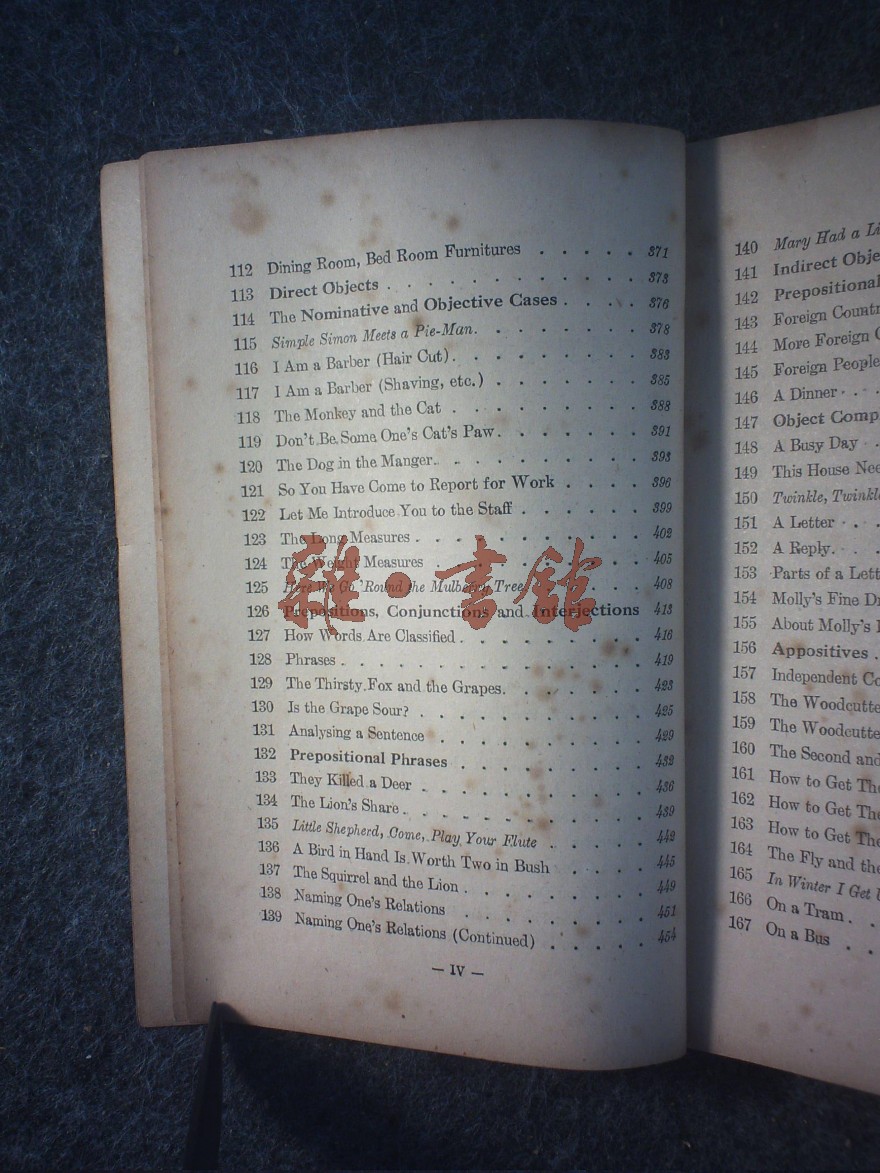 112 Dining Room, Bed Room Furnitures . . . . . 371
113 Direct Objects . . . . . . . . . . . 373
114 The Nominative and Objective Cases . . . . 376
115 Simple Simon Meets a Pie-Man. . . . . . . 378
116 I Am a Barber (Hair Cut). . . . . . . . 383
117 I Am a Barber (Shaving, etc.) . . . . . . . 385
118 The Monkey and the Cat . . . . . . . . 388
119 Don't Be Some One's Cat's Paw. . . . . . . 391
120 The Dog in the Manger. . . . . . . . . 393
121 So You Have Come to Report for Work . . . . 396
122 Let Me Introduce You to the Staff . . . . . . 399
123 The Long Measures . . . . . . . . . . 402
124 The Weight Measures . . . . . . . . . 405
125 Here We Go 'Round the Mulberry Tree . . . . . 408
126 Prepositions, Conjunctions and Interjections 413
127 How Words Are Classified . . . . . . . . 416
128 Phrases . . . . . . . . . . . . . 419
129 The Thirsty Fox and the Grapes. . . . . . . 423
130 Is the Grape Sour? . . . . . . . . . . 425
131 Analysing a Sentence . . . . . . . . . 429
132 Prepositional Phrases . . . . . . . . 432
133 They Killed a Deer . . . . . . . . . . 436
134 The Lion's Share . . . . . . . . . . . 439
135 Little Shepherd, Come, Play Your Flute . . . . . 442
136 A Bird in Hand Is Worth Two in Bush . . . . 445
137 The Squirrel and the Lion . . . . . . . . 449
138 Naming One's Relations . . . . . . . . 451
139 Naming One's Relations (Continued) . . . . . 454
— IV —
雜·書館
140 Mary Had a
141 Indirect
142 Prepositional
143 Foreign
144 More Foreign
145 Foreign
146 A Dinner . .
147 Object
148 A Busy Day .
149 This House
150 Twinkle,
151 A Letter . . .
152 A Reply. . .
153 Parts of a
154 Molly's Fine
155 About Molly's
156 Appositives .
157 Independent
158 The
159 The
160 The Second and
161 How to Get
162 How to Get
163 How to Get
164 The Fly and the
165 In Winter I Get
166 On a Tram . .
167 On a Bus . .